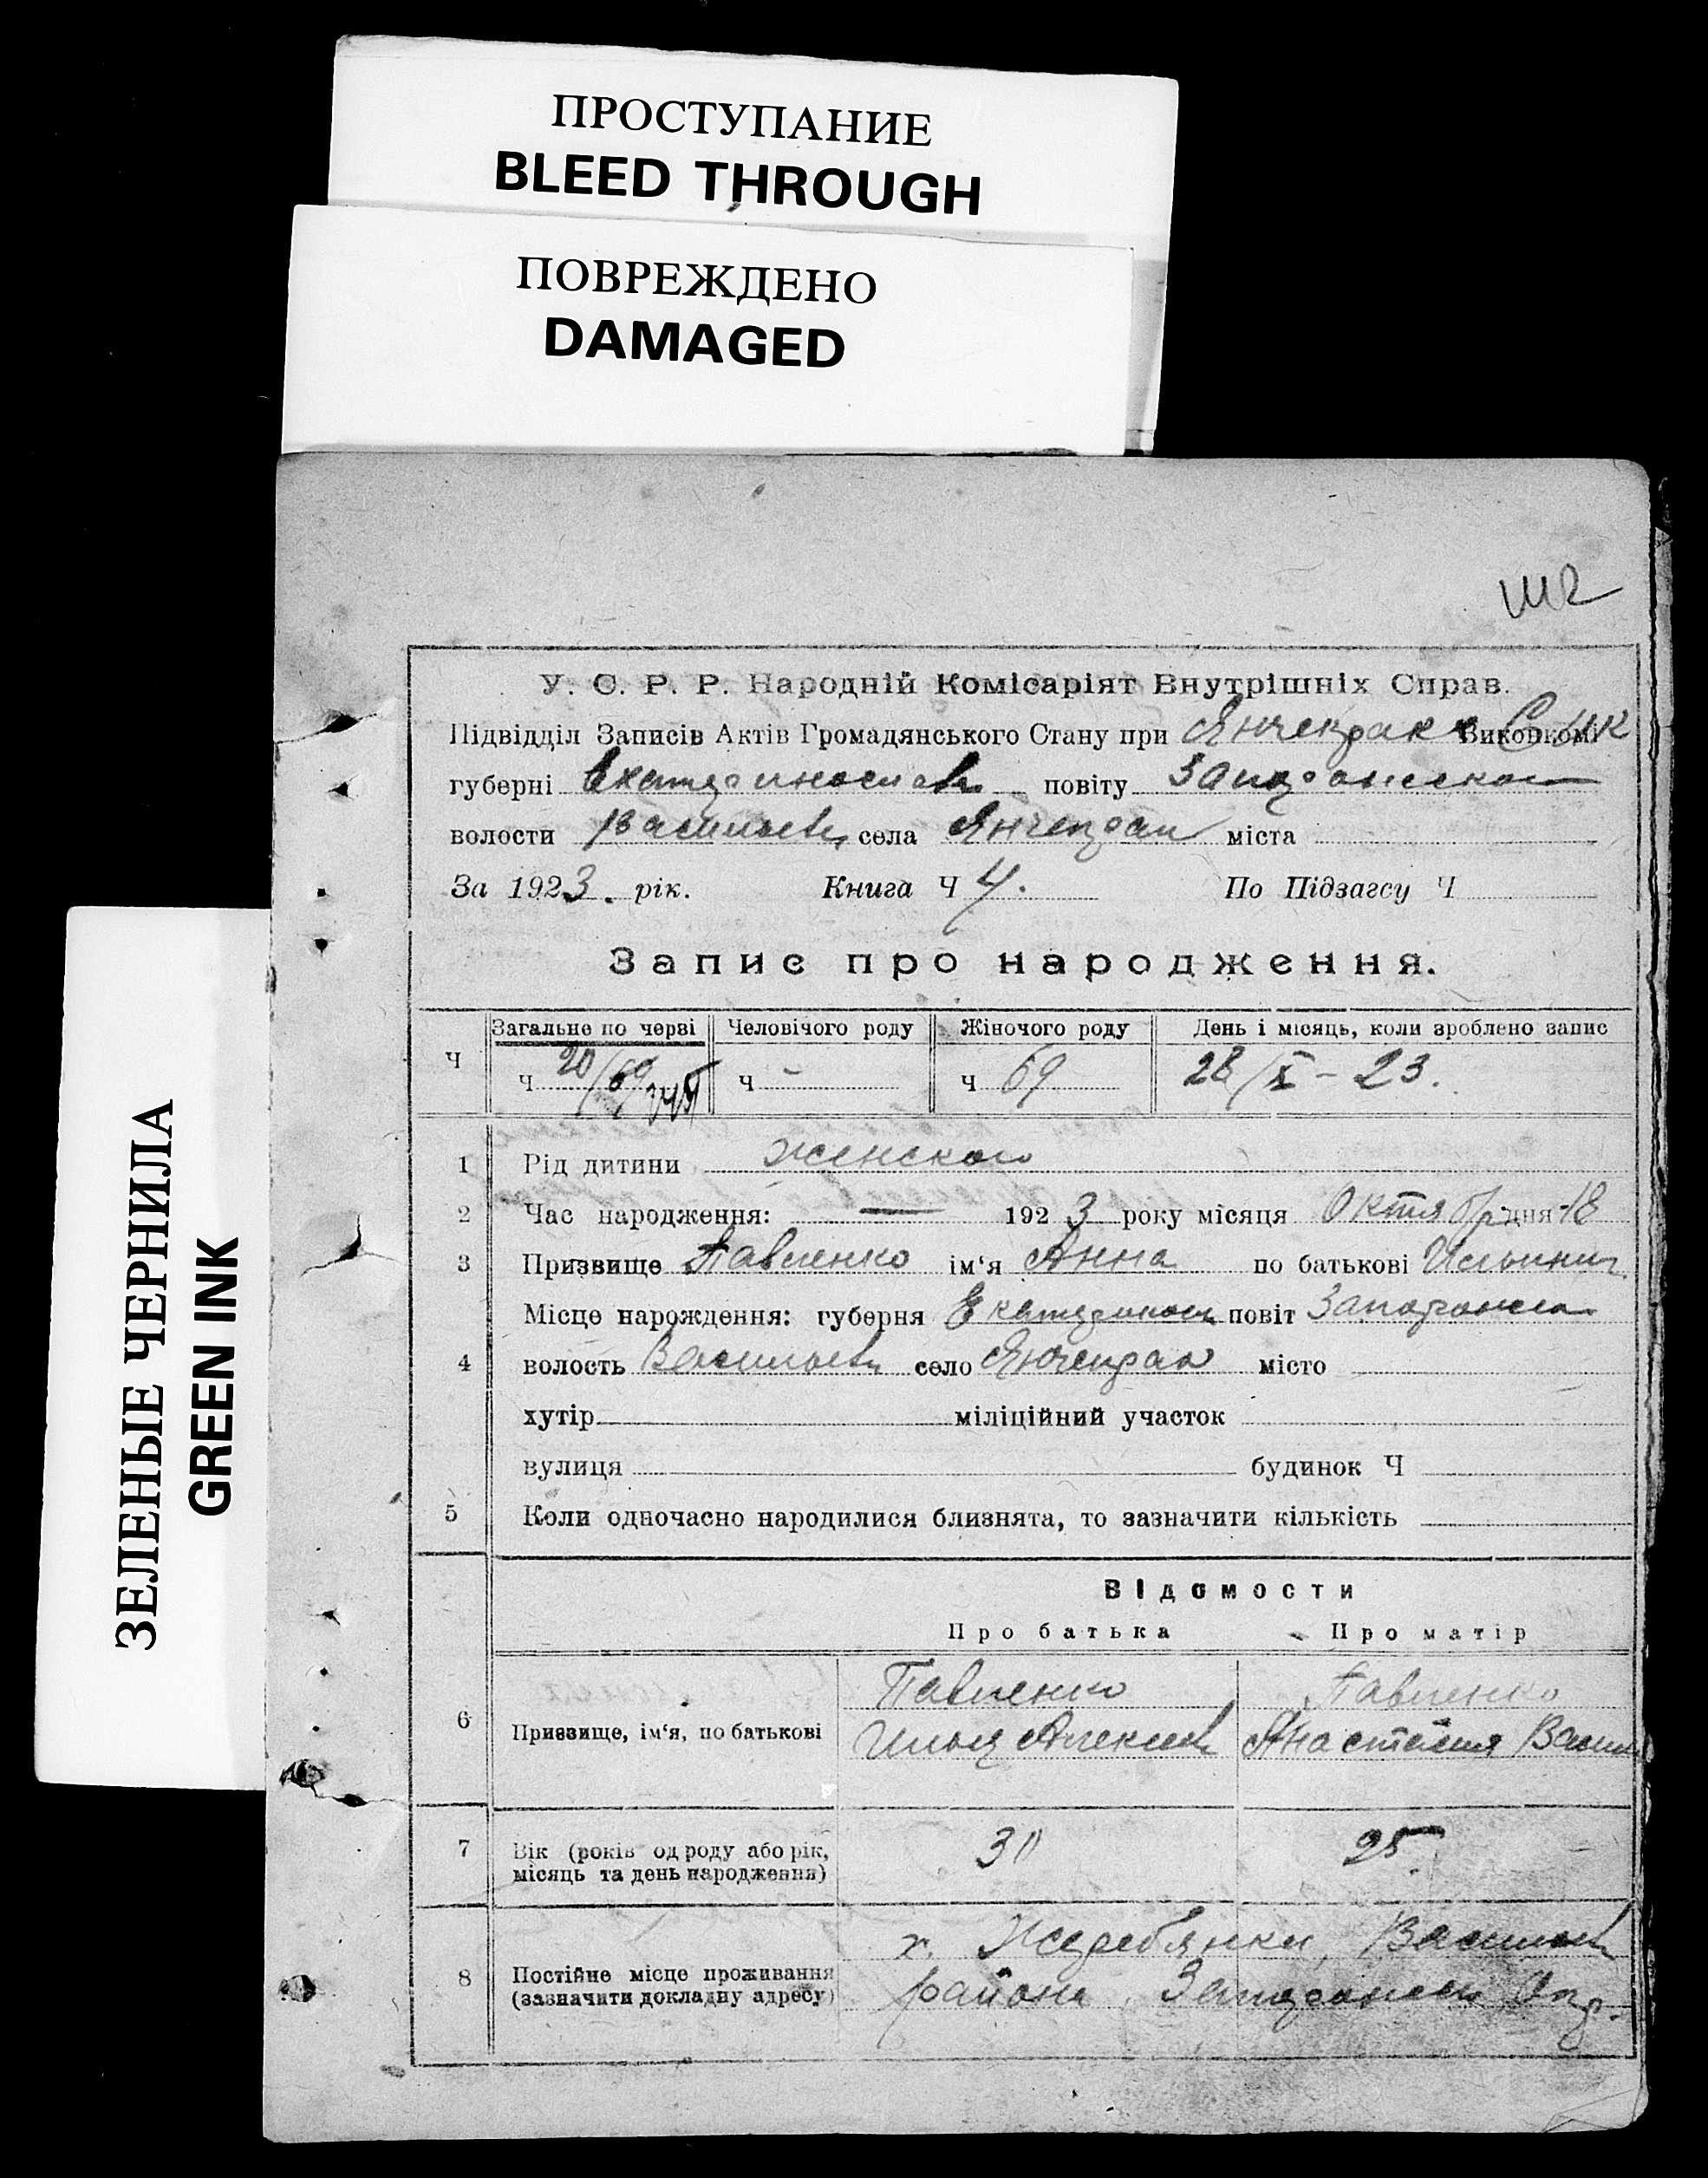 ПРОСТУПАНИЕ
BLEED THROUGH
ПОВРЕЖДЕНО
DAMAGED
ЗЕЛЕНЫЕ ЧЕРНИЛА
GREEN INK
У. С. Р. Р. Народній Комісаріят Внутрішніх Справ.
Підвідділ Записів Актів Громадянського Стану при Янчекрак Виконкомі
губерні Екатеринослав повіту Запорожской
волости Васильев села Янчекрак міста
За 1923. рік. Книга Ч 4. По Підзагсу Ч
Запис про народження.
Ч Загальне по черві Человічого роду Жіночого роду День і місяць, коли зроблено запис
Ч 20/69 Ч - Ч 69 28/X - 23.
1 Рід дитини женского
2 Час народження: — 1923 року місяця Октября дня 18
3 Призвище Павленко ім‘я Анна по батькові Ильинич
Місце нарождення: губерня Екатеринос повіт Запорожск
4 волость Васильев село Янчекрак місто
хутір міліційний участок
вулиця будинок Ч
5 Коли одночасно народилися близнята, то зазначити кількість
Відомости
Про батька Про матір
Павленко Павленко
6 Призвище, ім‘я, по батькові Илья Алексеев Анастасия Васил
7 Вік (років од роду або рік, 30 25
місяць та день народження)
х. Жеребянки, Васильев
8 Постійне місце проживання района, Запорожск Окр.
(зазначити докладну адресу)